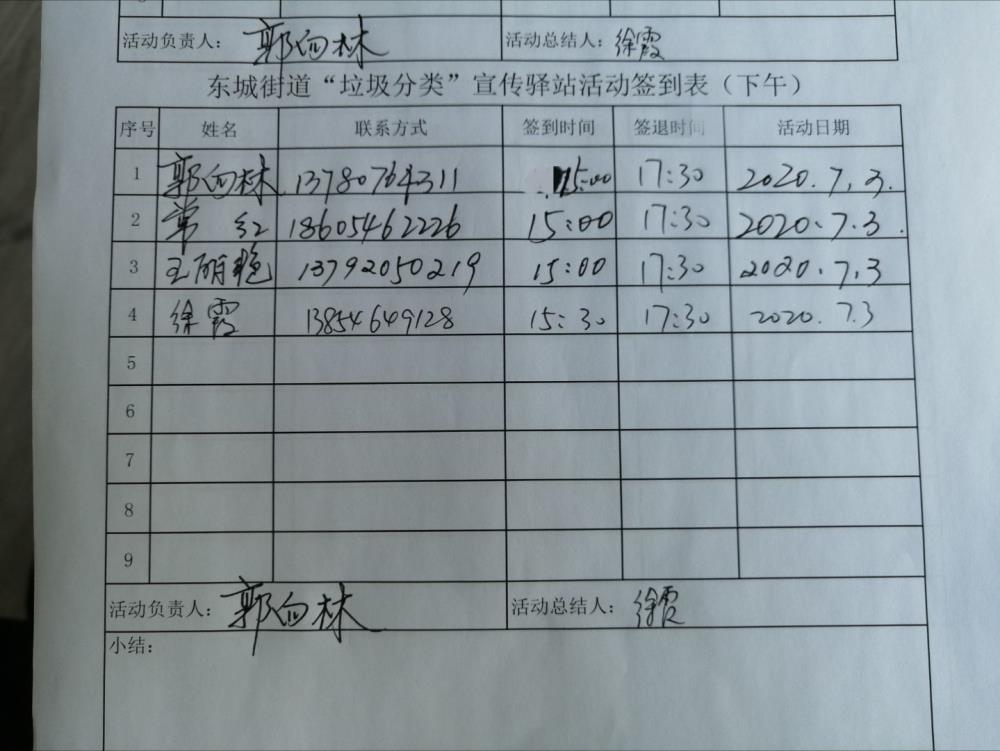 活动负责人：郭向林 活动总结人：徐霞
东城街道“垃圾分类”宣传驿站活动签到表（下午）
序号 姓名 联系方式 签到时间 签退时间 活动日期
1 郭向林 13780764311 15:00 17:30 2020.7.3.
2 常红 18605462226 15:00 17:30 2020.7.3.
3 王丽艳 13792050219 15:00 17:30 2020.7.3
4 徐霞 13854649128 15:30 17:30 2020.7.3
5
6
7
8
9
活动负责人：郭向林 活动总结人：徐霞
小结：